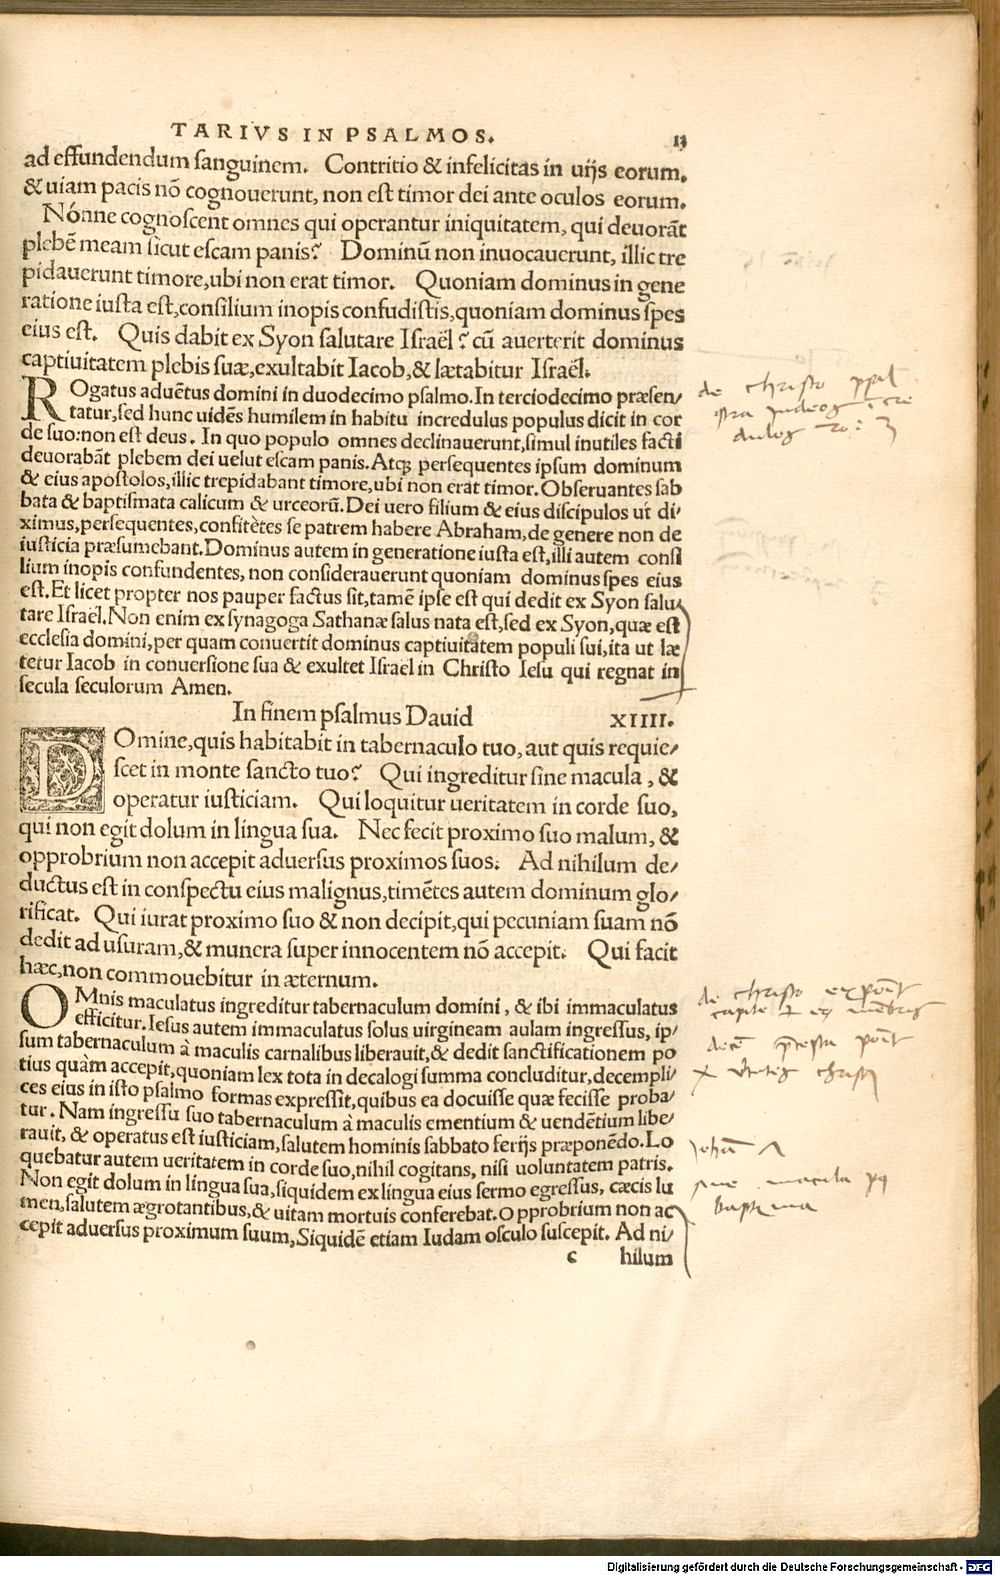 TARIVS IN PSALMOS. 13
ad effundendum sanguinem. Contritio & infelicitas in uijs eorum,
& uiam pacis nõ cognouerunt, non est timor dei ante oculos eorum.
Nónne cognoscent omnes qui operantur iniquitatem, qui deuorãt
plebẽ meam sicut escam panis? Dominũ non inuocauerunt, illic tre
pidauerunt timore, ubi non erat timor. Quoniam dominus in gene
ratione iusta est, consilium inopis confudistis, quoniam dominus spes
eius est. Quis dabit ex Syon salutare Israël? cũ auerterit dominus
captiuitatem plebis suæ, exultabit Iacob, & lætabitur Israël.
ROgatus aduẽtus domini in duodecimo psalmo. In terciodecimo præsen/
tatur, sed hunc uidẽs humilem in habitu incredulus populus dicit in cor
de suo: non est deus. In quo populo omnes declinauerunt, simul inutiles facti
deuorabãt plebem dei uelut escam panis. Atq; persequentes ipsum dominum
& eius apostolos, illic trepidabant timore, ubi non erat timor. Obseruantes sab
bata & baptismata calicum & urceorũ. Dei uero filium & eius discipulos ut di/
ximus, persequentes, confitẽtes se patrem habere Abraham, de genere non de
iusticia præsumebant. Dominus autem in generatione iusta est, illi autem consi
lium inopis confundentes, non considerauerunt quoniam dominus spes eius
est. Et licet propter nos pauper factus sit, tamẽ ipse est qui dedit ex Syon salu/
tare Israël. Non enim ex synagoga Sathanæ salus nata est, sed ex Syon, quæ est
ecclesia domini, per quam conuertit dominus captiuitatem populi sui, ita ut læ
tetur Iacob in conuersione sua & exultet Israël in Christo Iesu qui regnat in
secula seculorum Amen.
In finem psalmus Dauid XIIII.
DOmine, quis habitabit in tabernaculo tuo, aut quis requie/
scet in monte sancto tuo? Qui ingreditur sine macula, &
operatur iusticiam. Qui loquitur ueritatem in corde suo,
qui non egit dolum in lingua sua. Nec fecit proximo suo malum, &
opprobrium non accepit aduersus proximos suos. Ad nihilum de/
ductus est in conspectu eius malignus, timẽtes autem dominum glo/
rificat. Qui iurat proximo suo & non decipit, qui pecuniam suam nõ
dedit ad usuram, & munera super innocentem nõ accepit. Qui facit
hæc, non commouebitur in æternum.
OMnis maculatus ingreditur tabernaculum domini, & ibi immaculatus
efficitur. Iesus autem immaculatus solus uirgineam aulam ingressus, ip/
sum tabernaculum à maculis carnalibus liberauit, & dedit sanctificationem po
tius quàm accepit, quoniam lex tota in decalogi summa concluditur, decempli/
ces eius in isto psalmo formas expressit, quibus ea docuisse quæ fecisse proba/
tur. Nam ingressu suo tabernaculum à maculis ementium & uendẽtium libe/
rauit, & operatus est iusticiam, salutem hominis sabbato ferijs præponẽdo. Lo
quebatur autem ueritatem in corde suo, nihil cogitans, nisi uoluntatem patris.
Non egit dolum in lingua sua, siquidem ex lingua eius sermo egressus, cæcis lu
men, salutem ægrotantibus, & uitam mortuis conferebat. Opprobrium non ac
cepit aduersus proximum suum, Siquidẽ etiam Iudam osculo suscepit. Ad ni/
c hilum
de christo
de christo
christi
sine macula
Digitalisierung gefördert durch die Deutsche Forschungsgemeinschaft - DFG